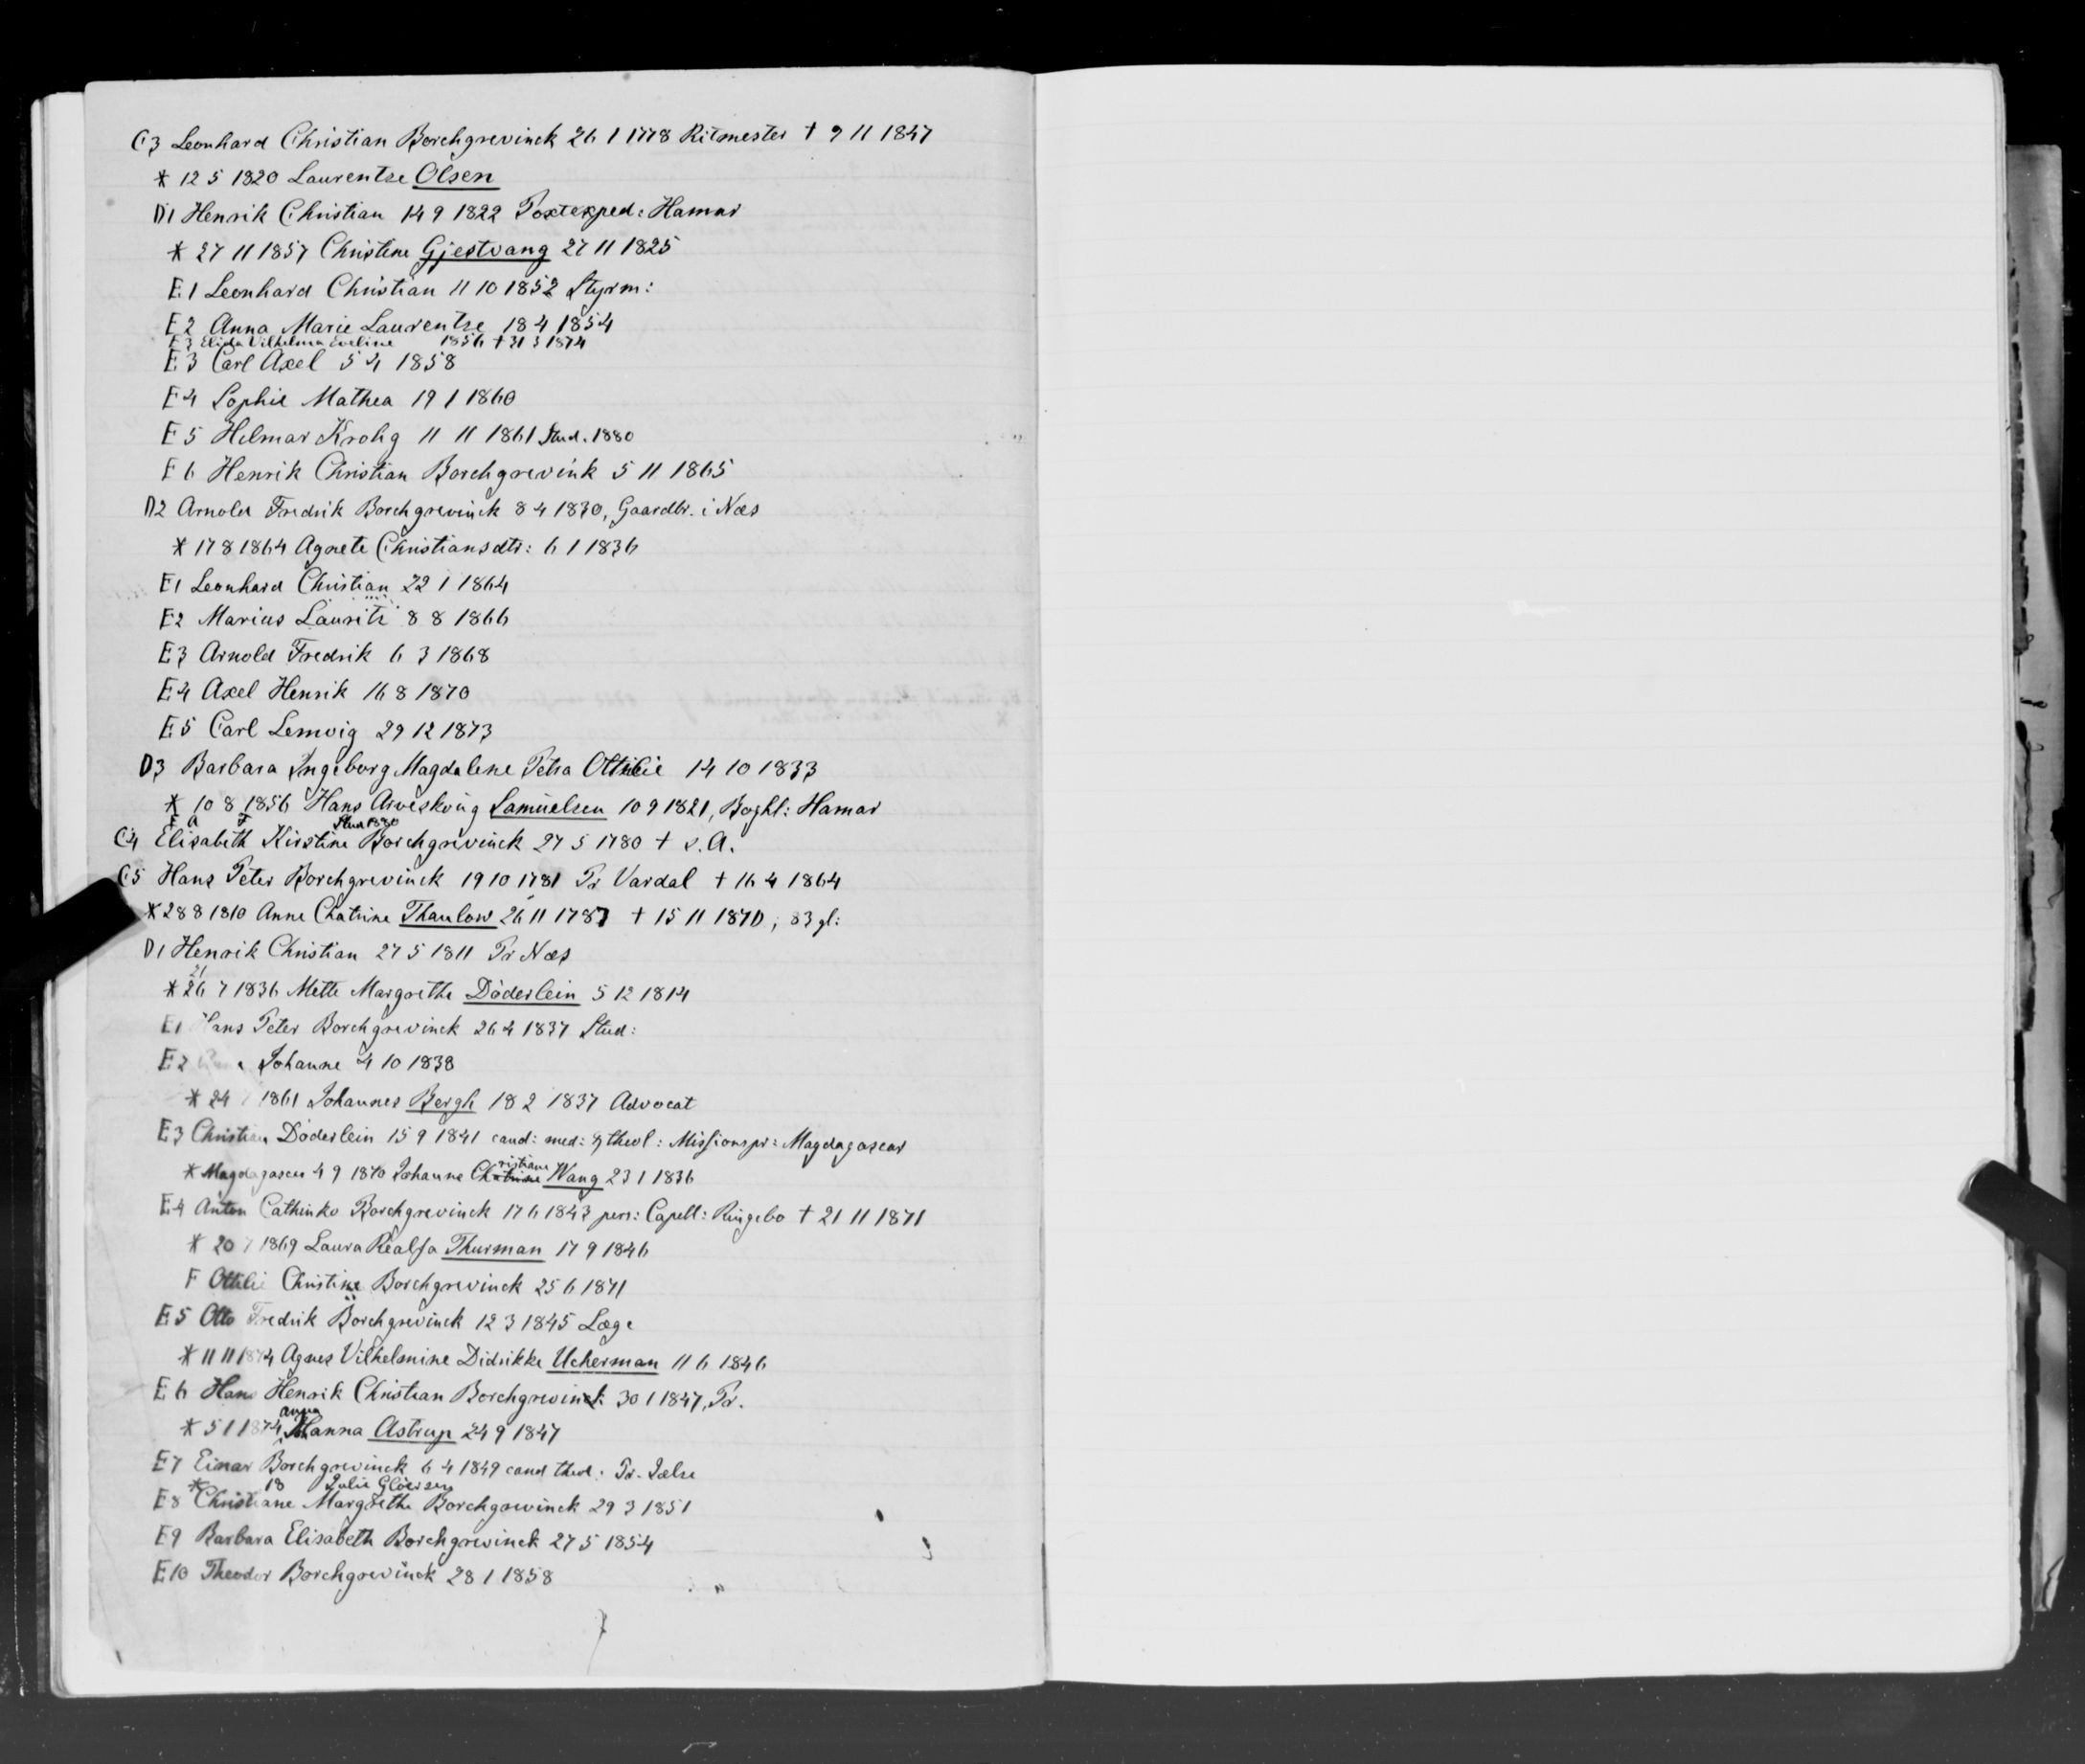 C3 Leonhard Christian Borchgrevinck 26 1 1778 Ritmester † 9 11 1847
* 12 5 1820 Laurentze Olsen
D1 Henrik Christian 14 9 1822 Postexped: Hamar
* 27 11 1857 Christine Gjestvang 27 11 1825
E1 Leonhard Christian 11 10 1852 Styrm:
E2 Anna Marie Laurentze 18 4 1854
E3 Elida Vilhelma Eveline 1856 † 31 3 1874
E3 Carl Axel 5 4 1858
E4 Sophie Mathea 19 1 1860
E5 Hilmar Krohg 11 11 1861 Stud. 1880
E6 Henrik Christian Borchgrevink 5 11 1865
D2 Arnold Fredrik Borchgrevinck 8 4 1830, Gaardbr. i Næs
* 17 8 1864 Agnete Christiansdtr: 6 1 1836
E1 Leonhard Christian 22 1 1864
E2 Marius Lauritz 8 8 1866
E3 Arnold Fredrik 6 3 1868
E4 Axel Henrik 16 8 1870
E5 Carl Lemvig 29 12 1873
D3 Barbara Ingeborg Magdalene Petra Ottilie 14 10 1833
* 10 8 1856 Hans Arveskoug Samuelsen 10 9 1821, Boghl: Hamar
E A F Stud 1880
C4 Elisabeth Kirstine Borchgrevinck 27 5 1780 † s.A.
C5 Hans Peter Borchgrevinck 19 10 1781 Pr Vardal † 16 4 1864
* 28 8 1810 Anne Chatrine Thaulow 26 11 1787 † 15 11 1870, 83 gl:
D1 Henrik Christian 27 5 1811 Pr Næs
21
* 26 7 1836 Mette Margrethe Döderlein 5 12 1814
E1 Hans Peter Borchgrevinck 26 4 1837 Stud:
E2 Johanne 4 10 1838
* 24 1861 Johannes Bergh 18 2 1837 Advocat
E3 Christian Döderlein 15 9 1841 cand: med: & theol: Missionspr: Magdagascar
* Magdagascar 4 9 1870 Johanne Chatrine ristiane Wang 23 1 1836
E4 Anton Cathinko Borchgrevinck 17 6 1843 pers: Capell: Ringebo † 21 11 1871
* 20 7 1869 Laura Realfa Thurman 17 9 1846
F Ottilie Christine Borchgrevinck 25 6 1871
E5 Otto Fredrik Borchgrevinck 12 3 1845 Læge
* 11 11 1874 Agnes Vilhelmine Didrikke Ucherman 11 6 1846
E6 Hans Henrik Christian Borchgrevinck 30 1 1847, Pr.
anna
* 5 1 1874 Hanna Astrup 24 9 1847
E7 Einar Borchgrevinck 6 4 1849 cand theol: Pr.
* 18 Julie Glöersen
E8 Christiane Margrethe Borchgrevinck 29 3 1851
E9 Barbara Elisabeth Borchgrevinck 27 5 1854
E10 Theodor Borchgrevinck 28 1 1858